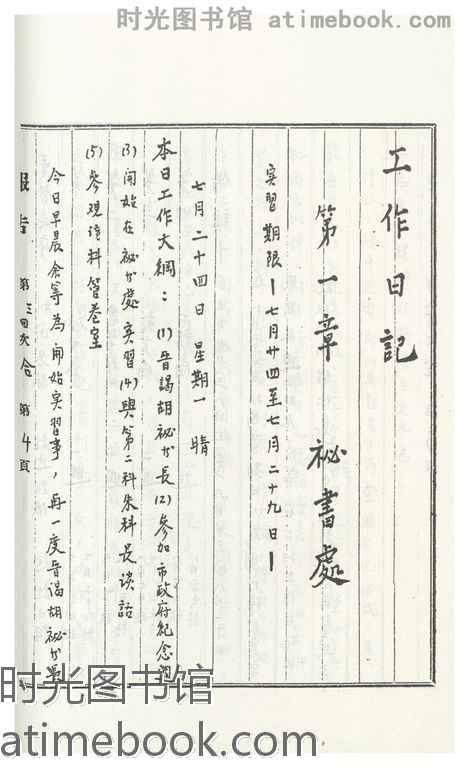 时光图书馆 atimebook.com
工作日记
第一章 祕書處
实習期限－七月廿四至七月二十九日－
七月二十四日 星期一 晴
本日工作大綱：(1)晋謁胡祕书長(2)参加市政府紀念週
(3)開始在祕书處实習(4)與第二科朱科長谈話
(5)参观
科管卷室
今日早晨余等為開始实習事，再一度晋謁胡祕书長
報告 第三四次合 第4頁
时光图书馆
atimebook.com